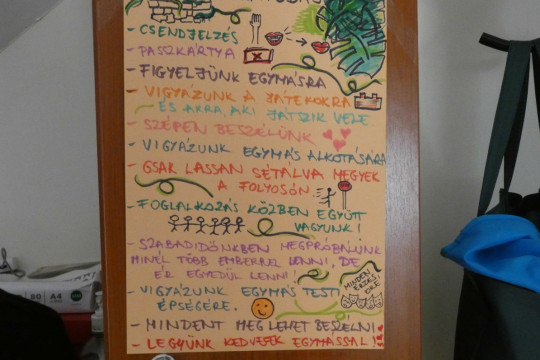 - CSENDJELZÉS
- PASSZKÁRTYA
- FIGYELJÜNK EGYMÁSRA
- VIGYÁZUNK A JÁTÉKOKRA
ÉS ARRA, AKI JÁTSZIK VELE
- SZÉPEN BESZÉLÜNK
- VIGYÁZUNK EGYMÁS ALKOTÁSÁRA
- CSAK LASSAN SÉTÁLVA MEGYEK
A FOLYOSÓN
- FOGLALKOZÁS KÖZBEN EGYÜTT
VAGYUNK!
- SZABADIDŐNKBEN MEGPRÓBÁLUNK
MINÉL TÖBB EMBERREL LENNI!, DE
ÉR EGYEDÜL LENNI!
MINDEN
ÉRZÉS
OKÉ
- VIGYÁZUNK EGYMÁS TESTI
ÉPSÉGÉRE.
- MINDENT MEG LEHET BESZÉLNI
- LEGYÜNK KEDVESEK EGYMÁSSAL!
80
A4